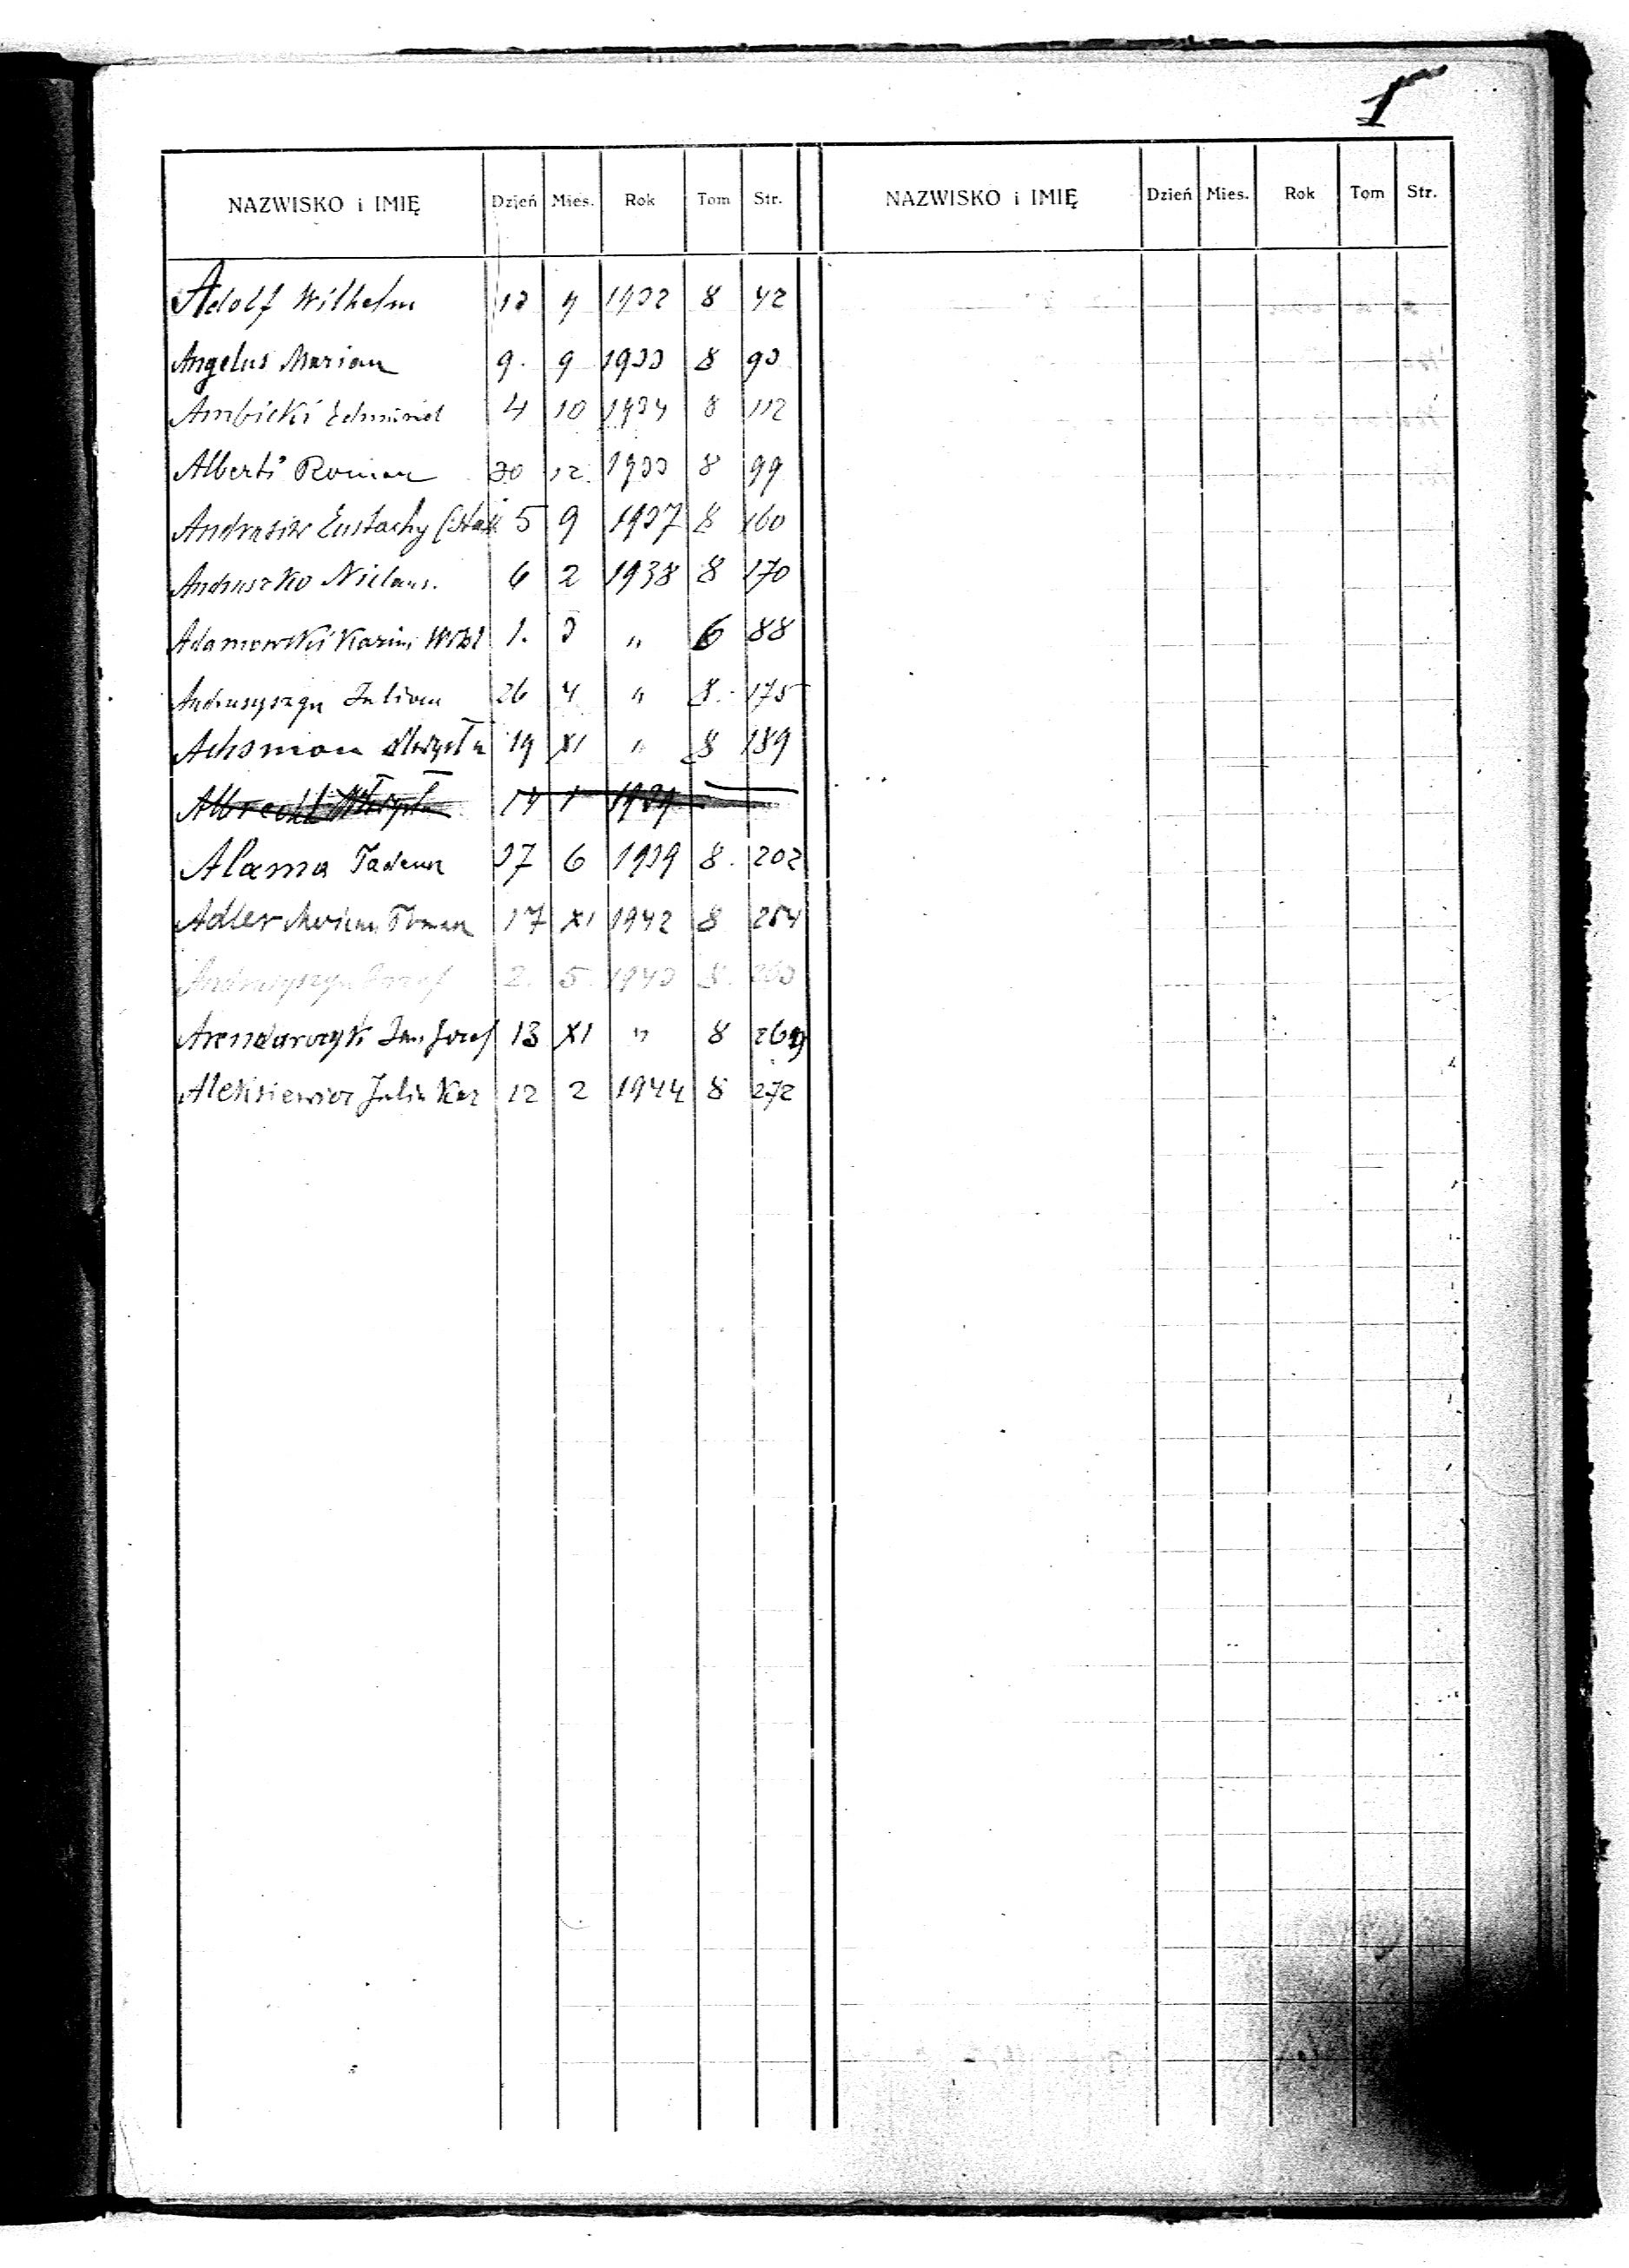 NAZWISKO i IMIĘ Dzień Mies. Rok Tom Str. NAZWISKO i IMIĘ Dzień Mies. Rok Tom Str.
Adolf Wilhelm 13 4 1932 8 42
Angelus Marian 9. 9 1933 8 93
Ambicki Edmund 4 10 1934 8 112
Alberti Roman 30 12. 1933 8 99
Andrusiw Eustachy 5 9 1937 8 160
Andruszko 6 2 1938 8 170
Adamowski Kazim 1. 3 " 6 88
Andrusyszyn Julian 26 4 " 8. 175
Achsman 19 XI " 8 189
Albrecht 14 1 1939
Alama Tadeusz 27 6 1939 8. 202
Adler 17 XI 1942 8 254
Andrusyszyn Józef 2. 5. 1943 8. 260
Arendarczyk Jan Józef 13 XI " 8 269
Aleksiewicz Julia Kaz 12 2 1944 8 272